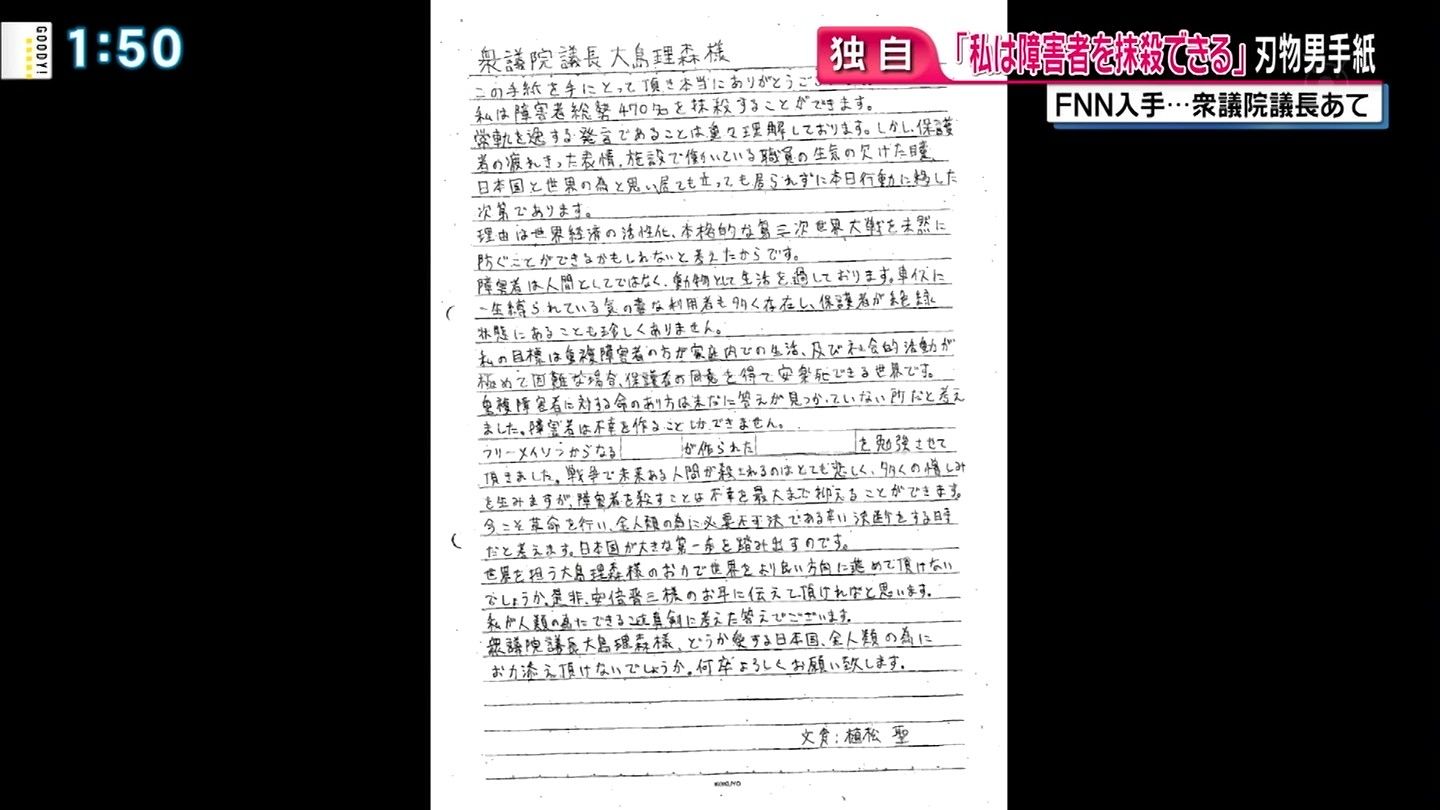 GOODY!
1:50
独自
「私は障害者を抹殺できる」刃物男手紙
FNN入手…衆議院議長あて
衆議院議長大島理森様
この手紙を手にとって頂き本当にありがとうござ
私は障害者総勢470名を抹殺することができます。
常軌を逸する発言であることは重々理解しております。しかし、保護
者の疲れきった表情、施設で働いている職員の生気の欠けた瞳、
日本国と世界の為と思い居ても立っても居られずに本日行動に移した
次第であります。
理由は世界経済の活性化、本格的な第三次世界大戦を未然に
防ぐことができるかもしれないと考えたからです。
障害者は人間としてではなく、動物として生活を過しております。車イスに
一生縛られている気の毒な利用者も多く存在し、保護者が絶縁
状態にあることも珍しくありません。
私の目標は重複障害者の方が家庭内での生活、及び社会的活動が
極めて困難な場合、保護者の同意を得て安楽死できる世界です。
重複障害者に対する命のあり方は未だに答えが見つかっていない所だと考え
ました。障害者は不幸を作ることしかできません。
フリーメイソンからなる が作られた を勉強させて
頂きました。戦争で未来ある人間が殺されるのはとても悲しく、多くの憎しみ
を生みますが、障害者を殺すことは不幸を最大まで抑えることができます。
今こそ革命を行い、全人類の為に必要不可決である辛い決断をする時
だと考えます。日本国が大きな第一歩を踏み出すのです。
世界を担う大島理森様のお力で世界をより良い方向に進めて頂けない
でしょうか。是非、安倍晋三様のお耳に伝えて頂ければと思います。
私が人類の為にできることを真剣に考えた答えでございます。
衆議院議長大島理森様、どうか愛する日本国、全人類の為に
お力添え頂けないでしょうか。何卒よろしくお願い致します。
文責:植松 聖
KOKUYO